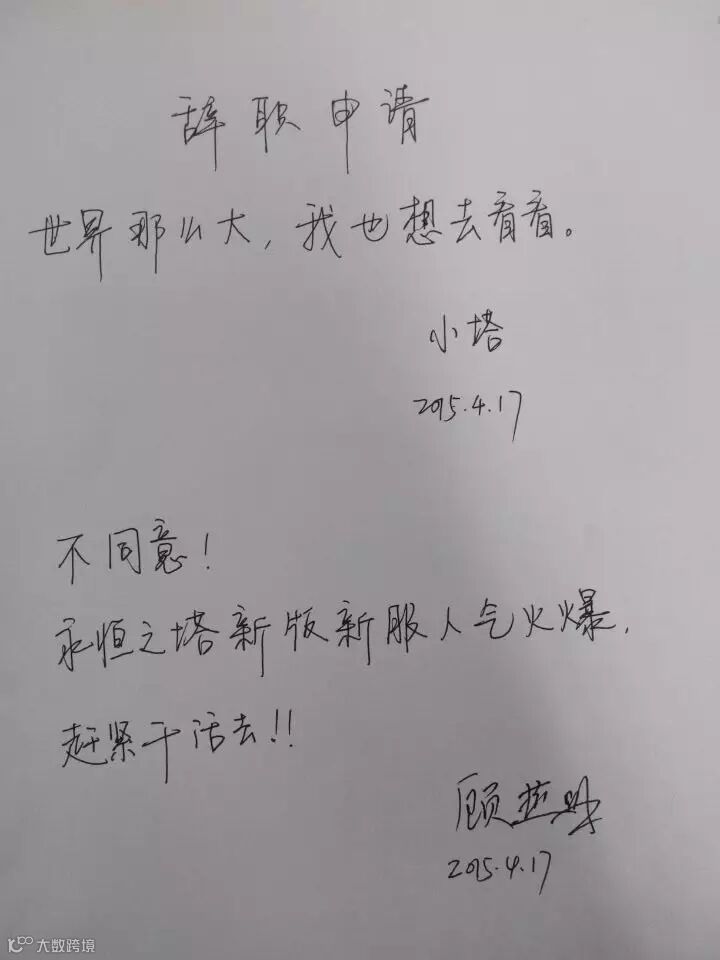 辞职申请
世界那么大，我也想去看看。
小塔
2015.4.17
不同意！
永恒之塔新版新服人气火爆，
赶紧干活去！！
顾
2015.4.17
大数跨境